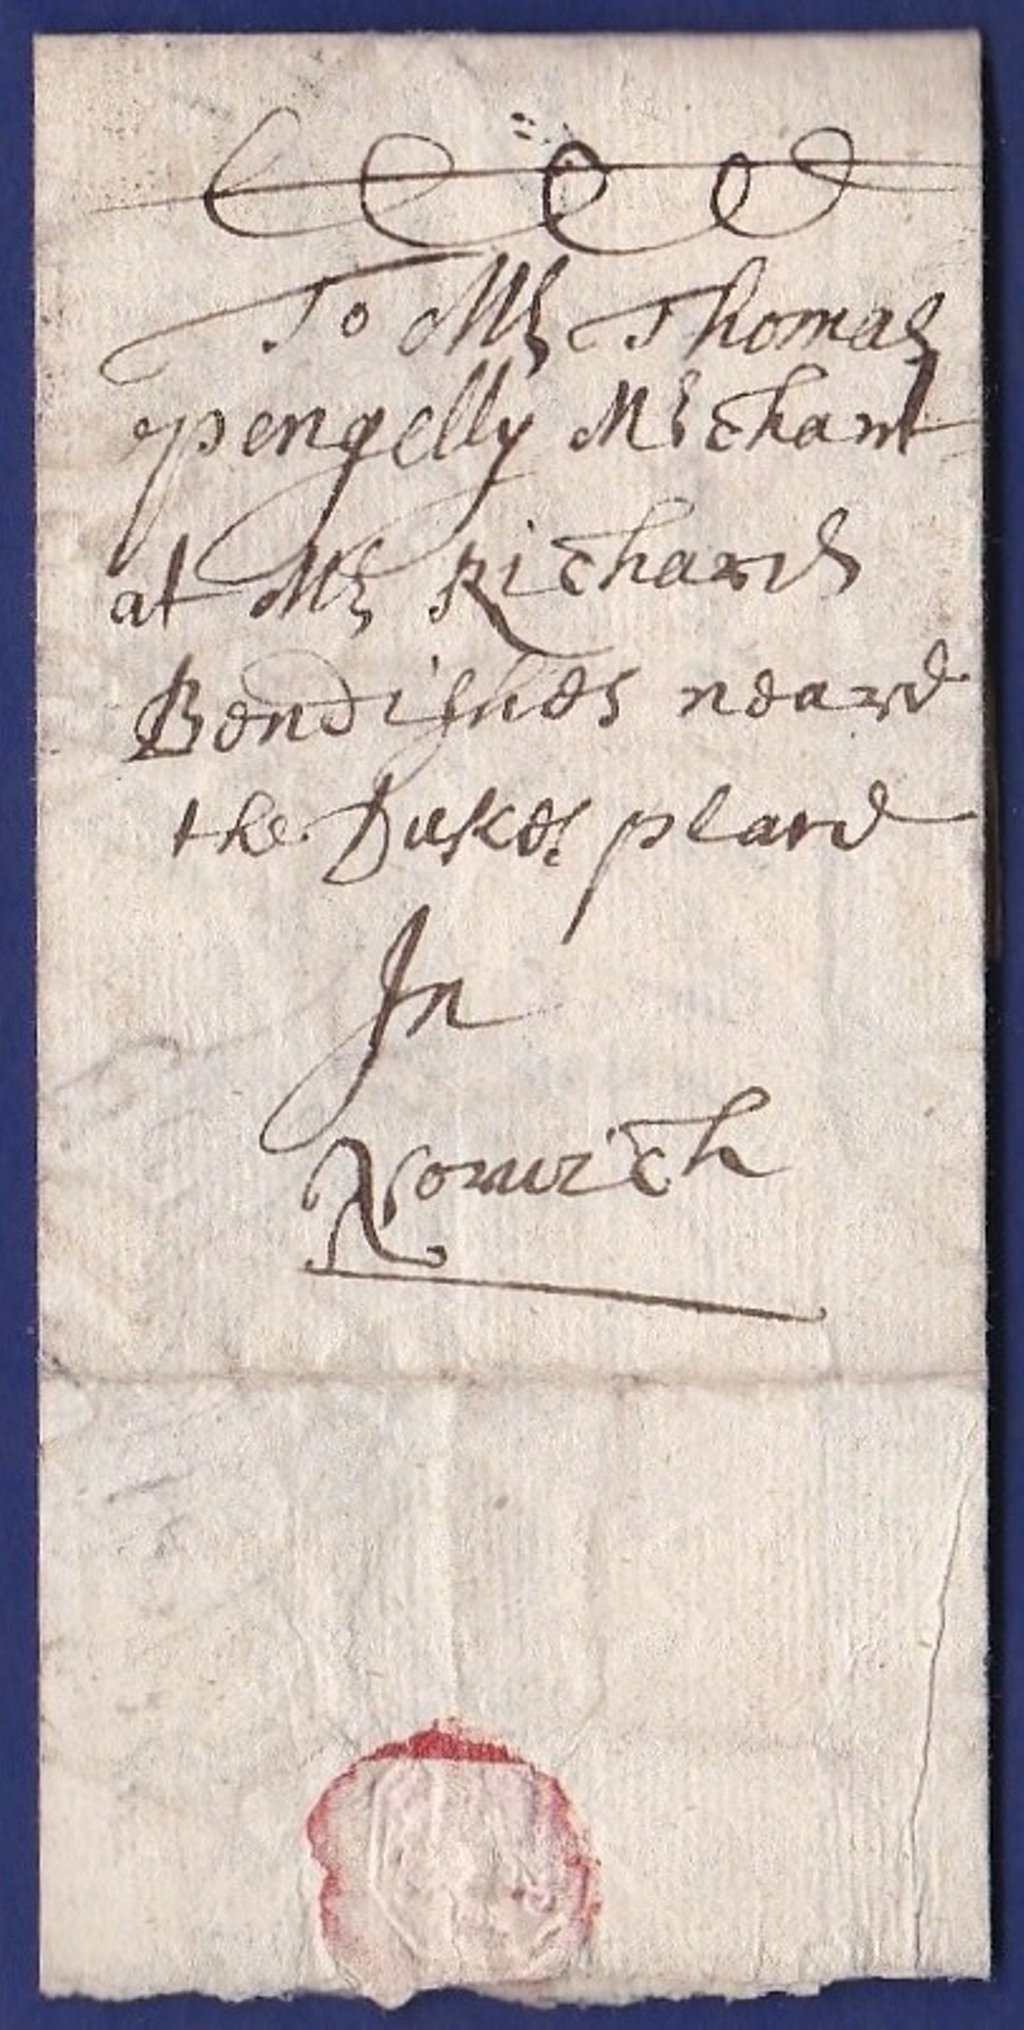 To Mr Thomas
pengelly Mrchant
at Mr Richard
Bendishes neare
the Dukes place
In
Norwich